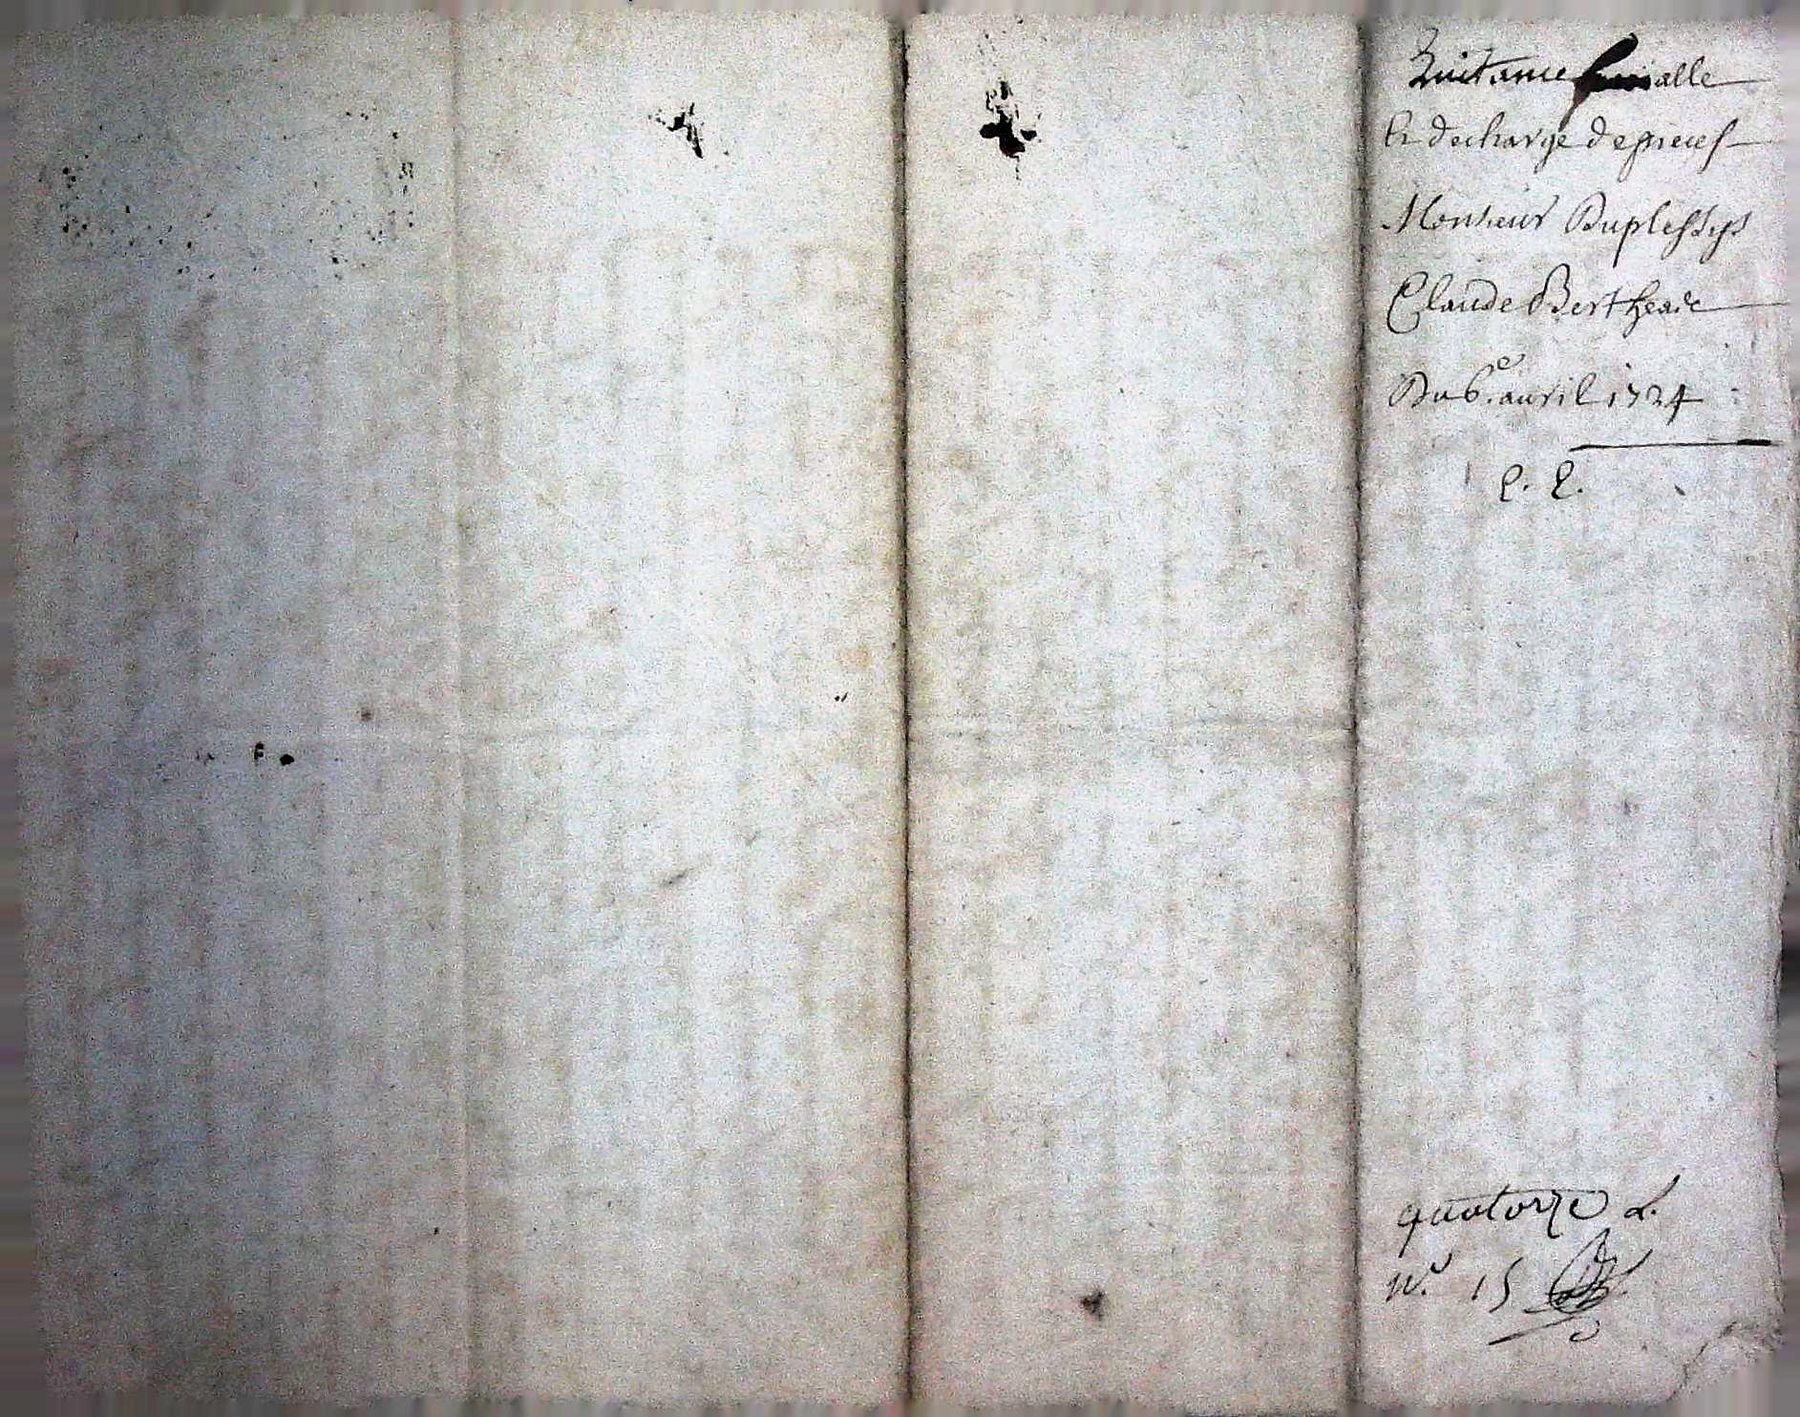 Quitance finialle
Et decharge de pieces
Monsieur Duplessys
Claude Bertheau
Du 6.e auril 1724
quatorze L.
n.o 15